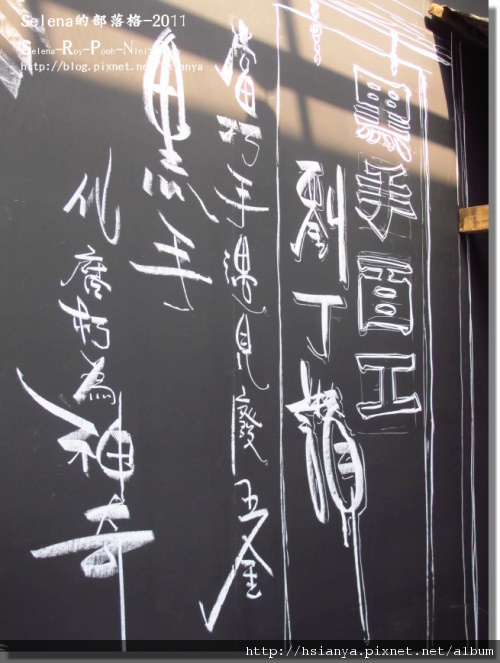 Selena的部落格-2011
Selena-Roy-Pooh-Nini
http://blog.pixnet.net/hsianya
黑手百工
劉丁讚
當巧手遇見廢五金
黑手
化腐朽為神奇
http://hsianya.pixnet.net/album